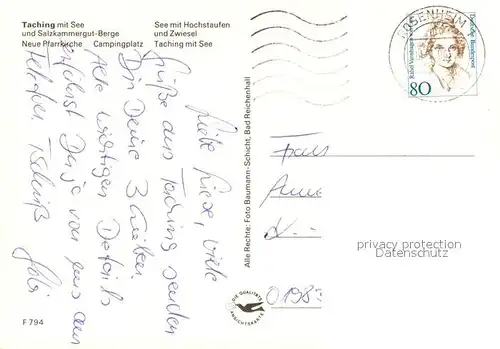 Taching mit See
und Salzkammergut-Berge
Neue Pfarrkirche Campingplatz
See mit Hochstaufen
und Zwiesel
Taching mit See
ROSENHEIM
Deutsche Bundespost
Rahel Varnhagen von
80
Liebe Liese, viele
Grüße aus Taching senden
Dir Deine 3 Lieben
Alle wichtigen Details
erfährst Du ja von uns am
Telefon. Tschüß
Alle Rechte: Foto Baumann-Schicht, Bad Reichenhall
Frau
privacy protection
Datenschutz
DIE QUALITÄTS
ANSICHTSKARTE
F 794